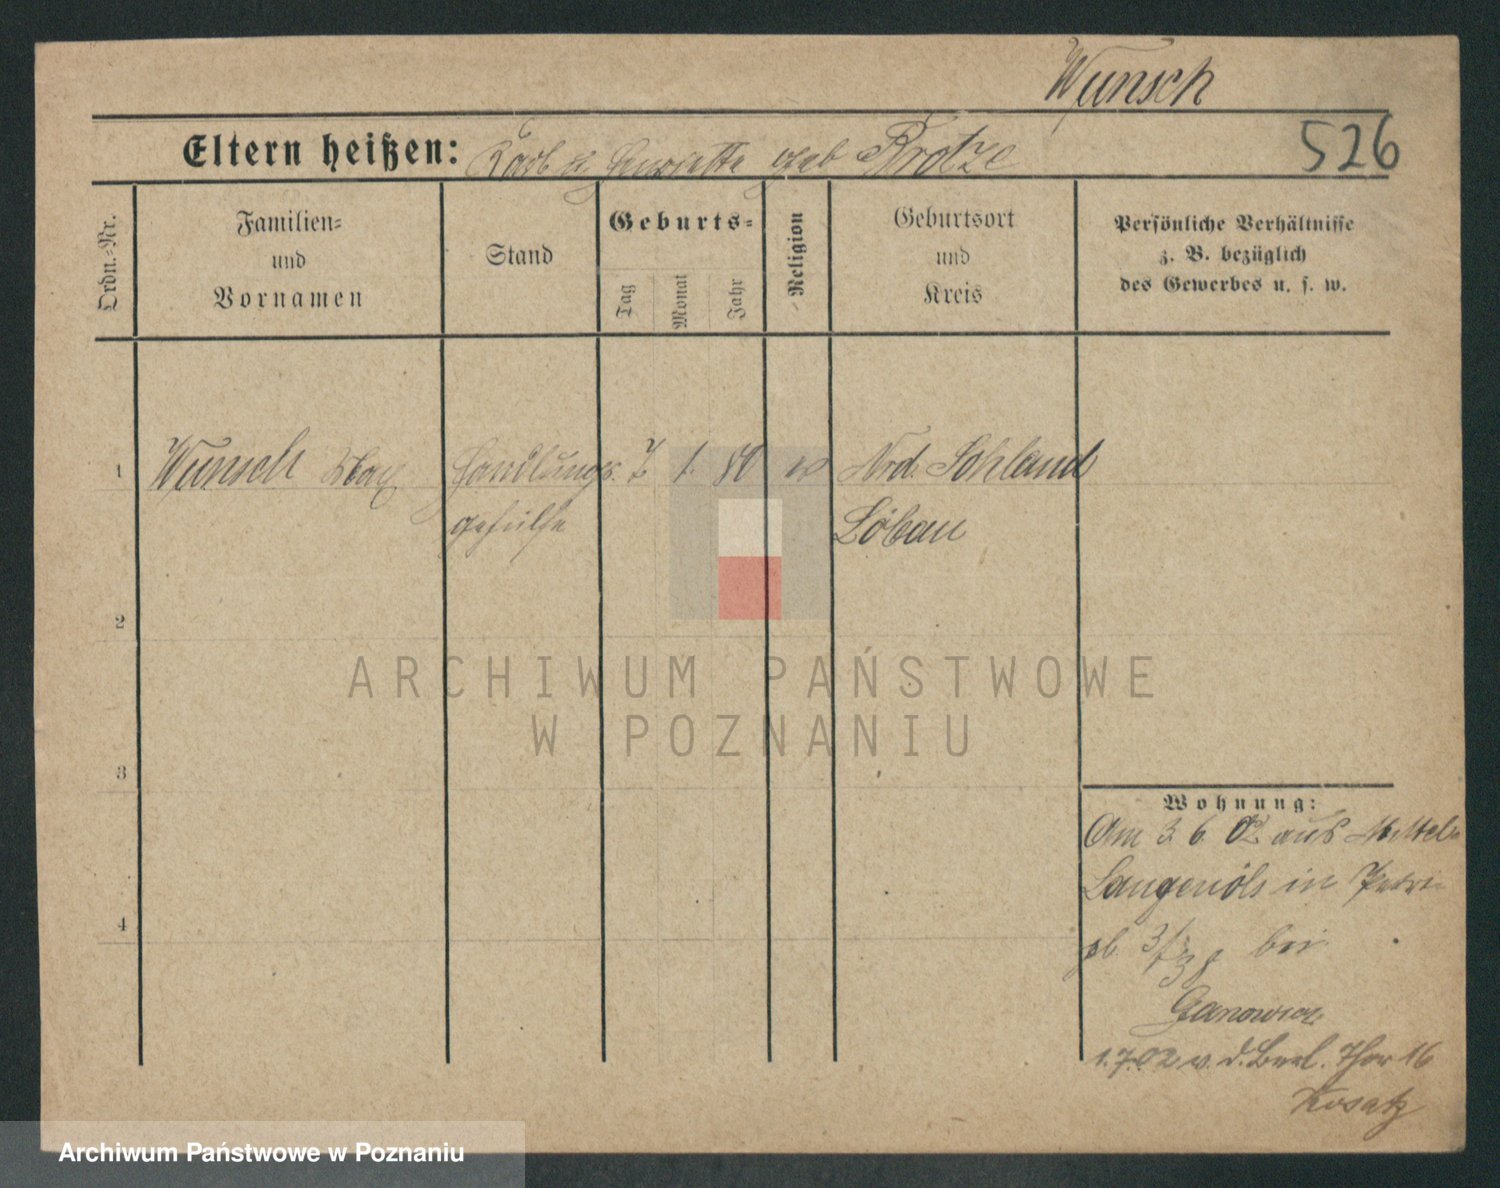 Wunsch
526
Eltern heißen: Karl u. Henriette geb Krotze
Ordn.-Nr.
Familien- und Vornamen
Stand
Geburts-
Tag
Monat
Jahr
Religion
Geburtsort und Kreis
Persönliche Verhältnisse
z. B. bezüglich
des Gewerbes u. s. w.
1 Wunsch Max Handlungs. 7 1. 80 ev Nrd. Sohland
gehülfe Löbau
2
3
4
Wohnung:
Am 3 6 02 aus Mittel
Langenöls in Petri
pl. bei
Ganowicz
1.7.02 v. d. Berl. Thor 16
Kosatz
ARCHIWUM PAŃSTWOWE
W POZNANIU
Archiwum Państwowe w Poznaniu